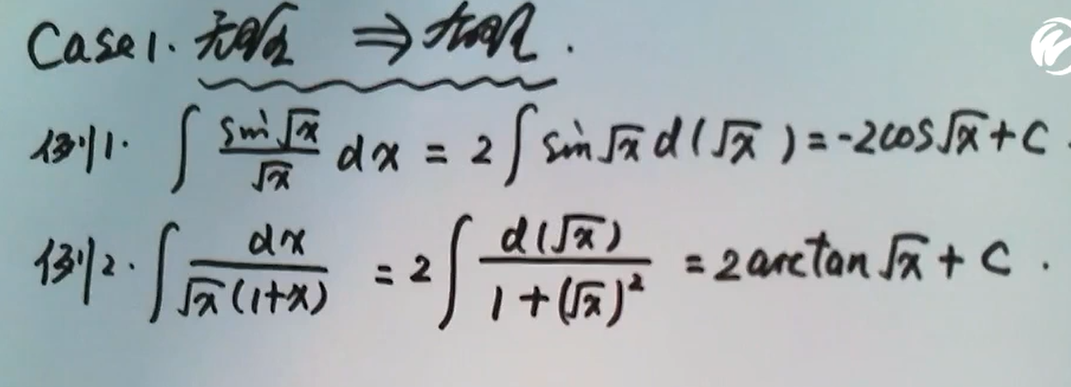 Case 1. 无理 ⇒ 有理.
例1. ∫ sin√x/√x dx = 2∫ sin√x d(√x) = -2cos√x + C.
例2. ∫ dx/(√x(1+x)) = 2∫ d(√x)/(1+(√x)²) = 2arctan√x + C.